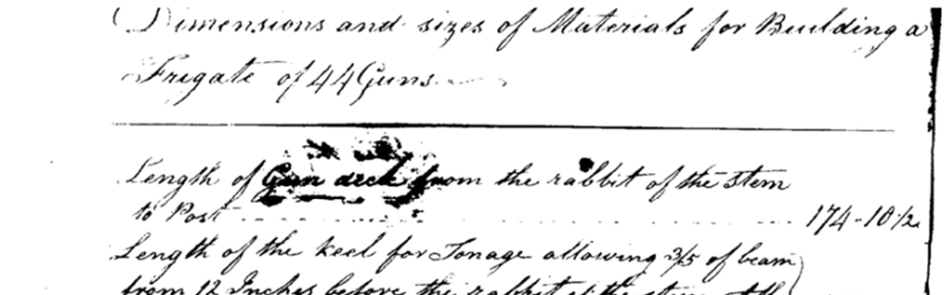 Dimensions and sizes of Materials for Building a
Frigate of 44 Guns
Length of Gun deck from the rabbit of the stem
to Post 174-10 1/2
Length of the keel for Tonage allowing 3/5 of beam
from 12 Inches before the rabbit of the stem